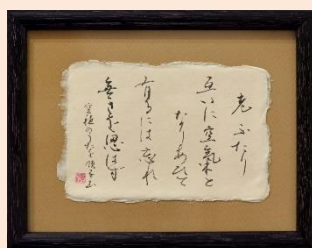 老ふたり
互いに空氣と
なりあひて
有るには忘れ
無きを思はず
空穂のうたを